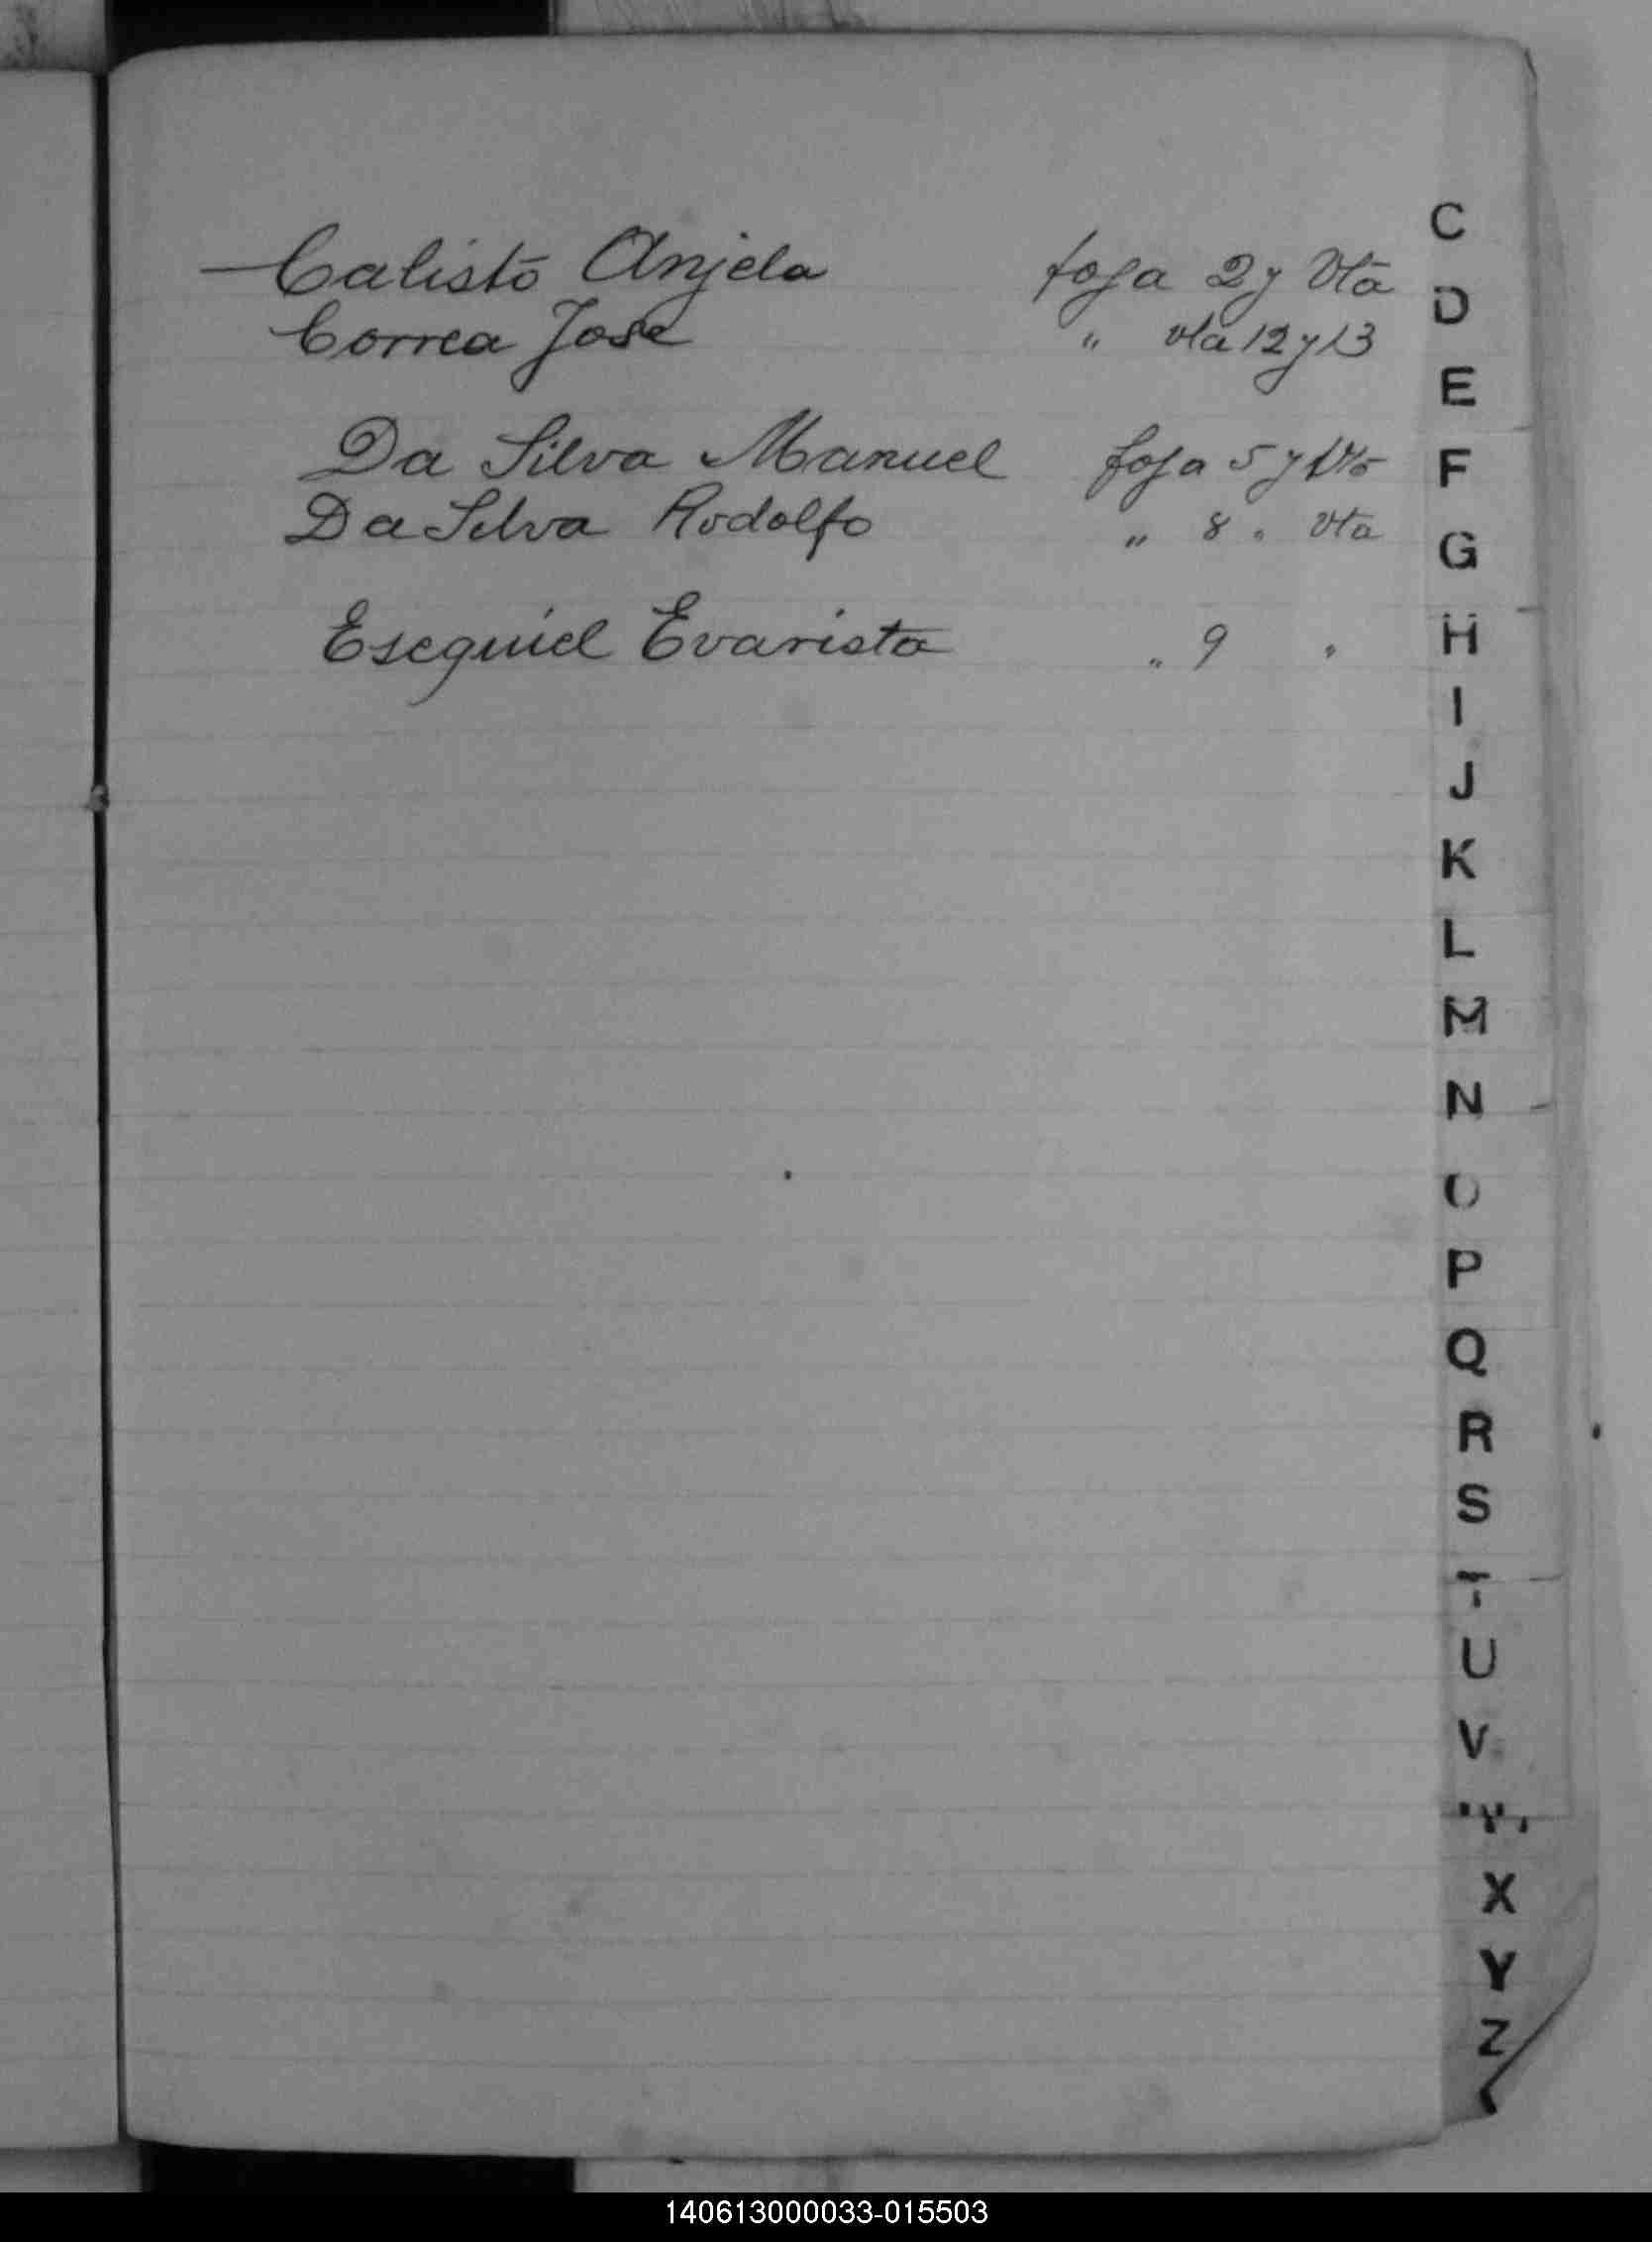 Calisto Anjela foja 2 y Vta
Correa Jose " vta 12 y 13
Da Silva Manuel foja 5 y Vta
Da Silva Rodolfo " 8 " vta
Esequiel Evarista " 9 "
C
D
E
F
G
H
I
J
K
L
M
N
O
P
Q
R
S
T
U
V
W
X
Y
Z
140613000033-015503